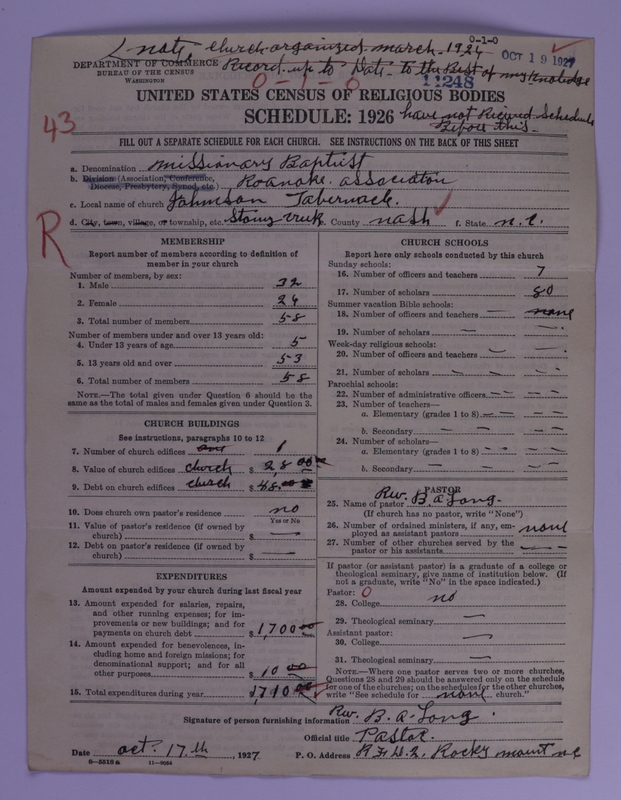 note, church organized march. 1924
0-1-0
OCT 19 1927
DEPARTMENT OF COMMERCE
BUREAU OF THE CENSUS
WASHINGTON
Record up to Date to the Best of my Knolidge
0 - 1 - 0
11248
UNITED STATES CENSUS OF RELIGIOUS BODIES
SCHEDULE: 1926
have not Recived Schedule
Before this
43
FILL OUT A SEPARATE SCHEDULE FOR EACH CHURCH. SEE INSTRUCTIONS ON THE BACK OF THIS SHEET
a. Denomination missionary Baptist
b. Division (Association, Conference, Diocese, Presbytery, Synod, etc.) Roanoke association
c. Local name of church Johnson Tabernacle
d. City, town, village, or township, etc. Stony creek e. County nash f. State n.c.
R
MEMBERSHIP
Report number of members according to definition of
member in your church
Number of members, by sex:
1. Male 32
2. Female 26
3. Total number of members 58
Number of members under and over 13 years old:
4. Under 13 years of age 5
5. 13 years old and over 53
6. Total number of members 58
NOTE.—The total given under Question 6 should be the
same as the total of males and females given under Question 3.
CHURCH BUILDINGS
See instructions, paragraphs 10 to 12
7. Number of church edifices one 1
8. Value of church edifices church $
9. Debt on church edifices church $
10. Does church own pastor's residence no
Yes or No
11. Value of pastor's residence (if owned by
church) $ —
12. Debt on pastor's residence (if owned by
church) $ —
EXPENDITURES
Amount expended by your church during last fiscal year
13. Amount expended for salaries, repairs,
and other running expenses; for im-
provements or new buildings; and for
payments on church debt $ 1,700 00
14. Amount expended for benevolences, in-
cluding home and foreign missions; for
denominational support; and for all
other purposes $ 10 00
15. Total expenditures during year 1,710 00
CHURCH SCHOOLS
Report here only schools conducted by this church
Sunday schools:
16. Number of officers and teachers 7
17. Number of scholars 80
Summer vacation Bible schools:
18. Number of officers and teachers — none
19. Number of scholars — —
Week-day religious schools:
20. Number of officers and teachers — —
21. Number of scholars — — —
Parochial schools:
22. Number of administrative officers — — — —
23. Number of teachers—
a. Elementary (grades 1 to 8) — — — —
b. Secondary — — — —
24. Number of scholars—
a. Elementary (grades 1 to 8) — — — —
b. Secondary — — — —
PASTOR
25. Name of pastor Rev. B. A. Long.
(If church has no pastor, write "None")
26. Number of ordained ministers, if any, em-
ployed as assistant pastors none
27. Number of other churches served by the
pastor or his assistants — — —
If pastor (or assistant pastor) is a graduate of a college or
theological seminary, give name of institution below. (If
not a graduate, write "No" in the space indicated.)
Pastor: 0
28. College no
29. Theological seminary —
Assistant pastor:
30. College —
31. Theological seminary —
NOTE.—Where one pastor serves two or more churches,
Questions 28 and 29 should be answered only on the schedule
for one of the churches; on the schedules for the other churches,
write "See schedule for none church."
Signature of person furnishing information Rev. B. A. Long.
Official title Pastor.
Date oct. 17th, 1927 P. O. Address R.F.D. 2, Rocky mount n.c.
8—5518 a 11—9084